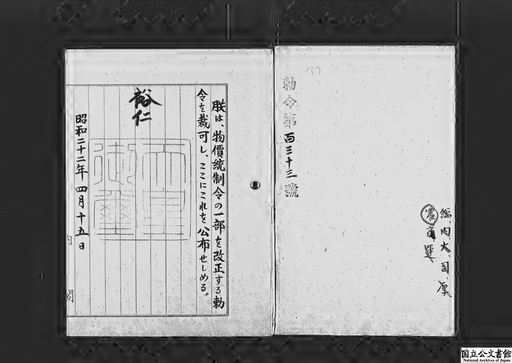 勅令第百三十三號
総、内、大、司、厚
農商運
朕は、物價統制令の一部を改正する勅
令を裁可し、ここにこれを公布せしめる。
裕仁
天皇御璽
昭和二十二年四月十五日
内閣
国立公文書館
National Archives of Japan